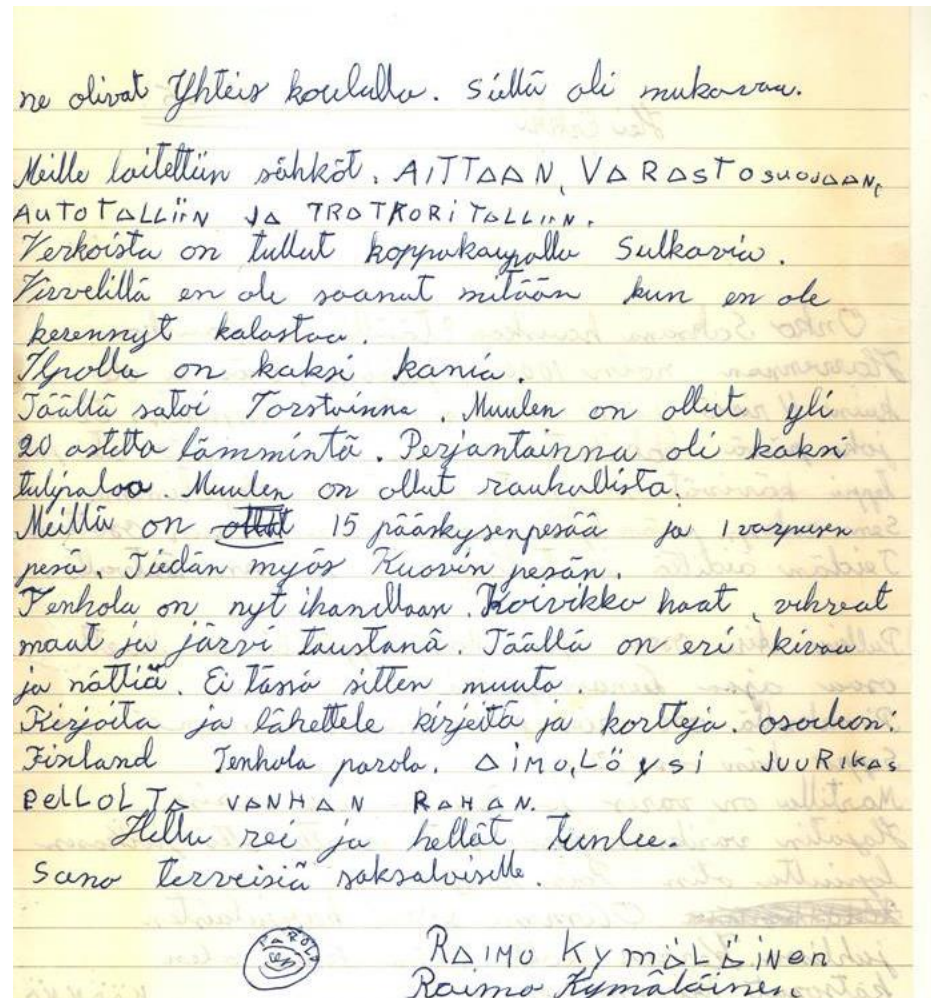 ne olivat Yhteis koululla. Siellä oli mukavaa.
Meille laitettiin sähköt. AITTAAN, VARASTOSUOJAAN,
AUTOTALLIIN JA TRATKORITALLIIN.
Verkoista on tullut koppakaupalla Sulkavia.
Virvelillä en ole saanut mitään kun en ole
kerennyt kalastaa.
Ilpolla on kaksi kania.
Täällä satoi Torstainna. Muulen on ollut yli
20 astetta lämmintä. Perjantainna oli kaksi
tulipaloa. Muulen on ollut rauhallista.
Meillä on ollut 15 pääskysenpesää ja 1 varpusen
pesä. Tiedän myös Kuovin pesän.
Tenhola on nyt ihanillaan. Koivikko haat, vihreat
maat ja järvi taustanä. Täällä on eri kivaa
ja nättiä. Ei tässä sitten muuta.
Kirjoita ja lähettele kirjeitä ja kortteja. osoiteoni.
Finland Tenhola parola. AIMO, LÖYSI JUURIKAS
PELLOLTA VANHAN RAHAN.
Hellu rei ja hellät tunlee.
Sano terveisiä saksaloisille.
PAROLA
RAIMO KYMÄLÄINEN
Raimo Kymäläinen.